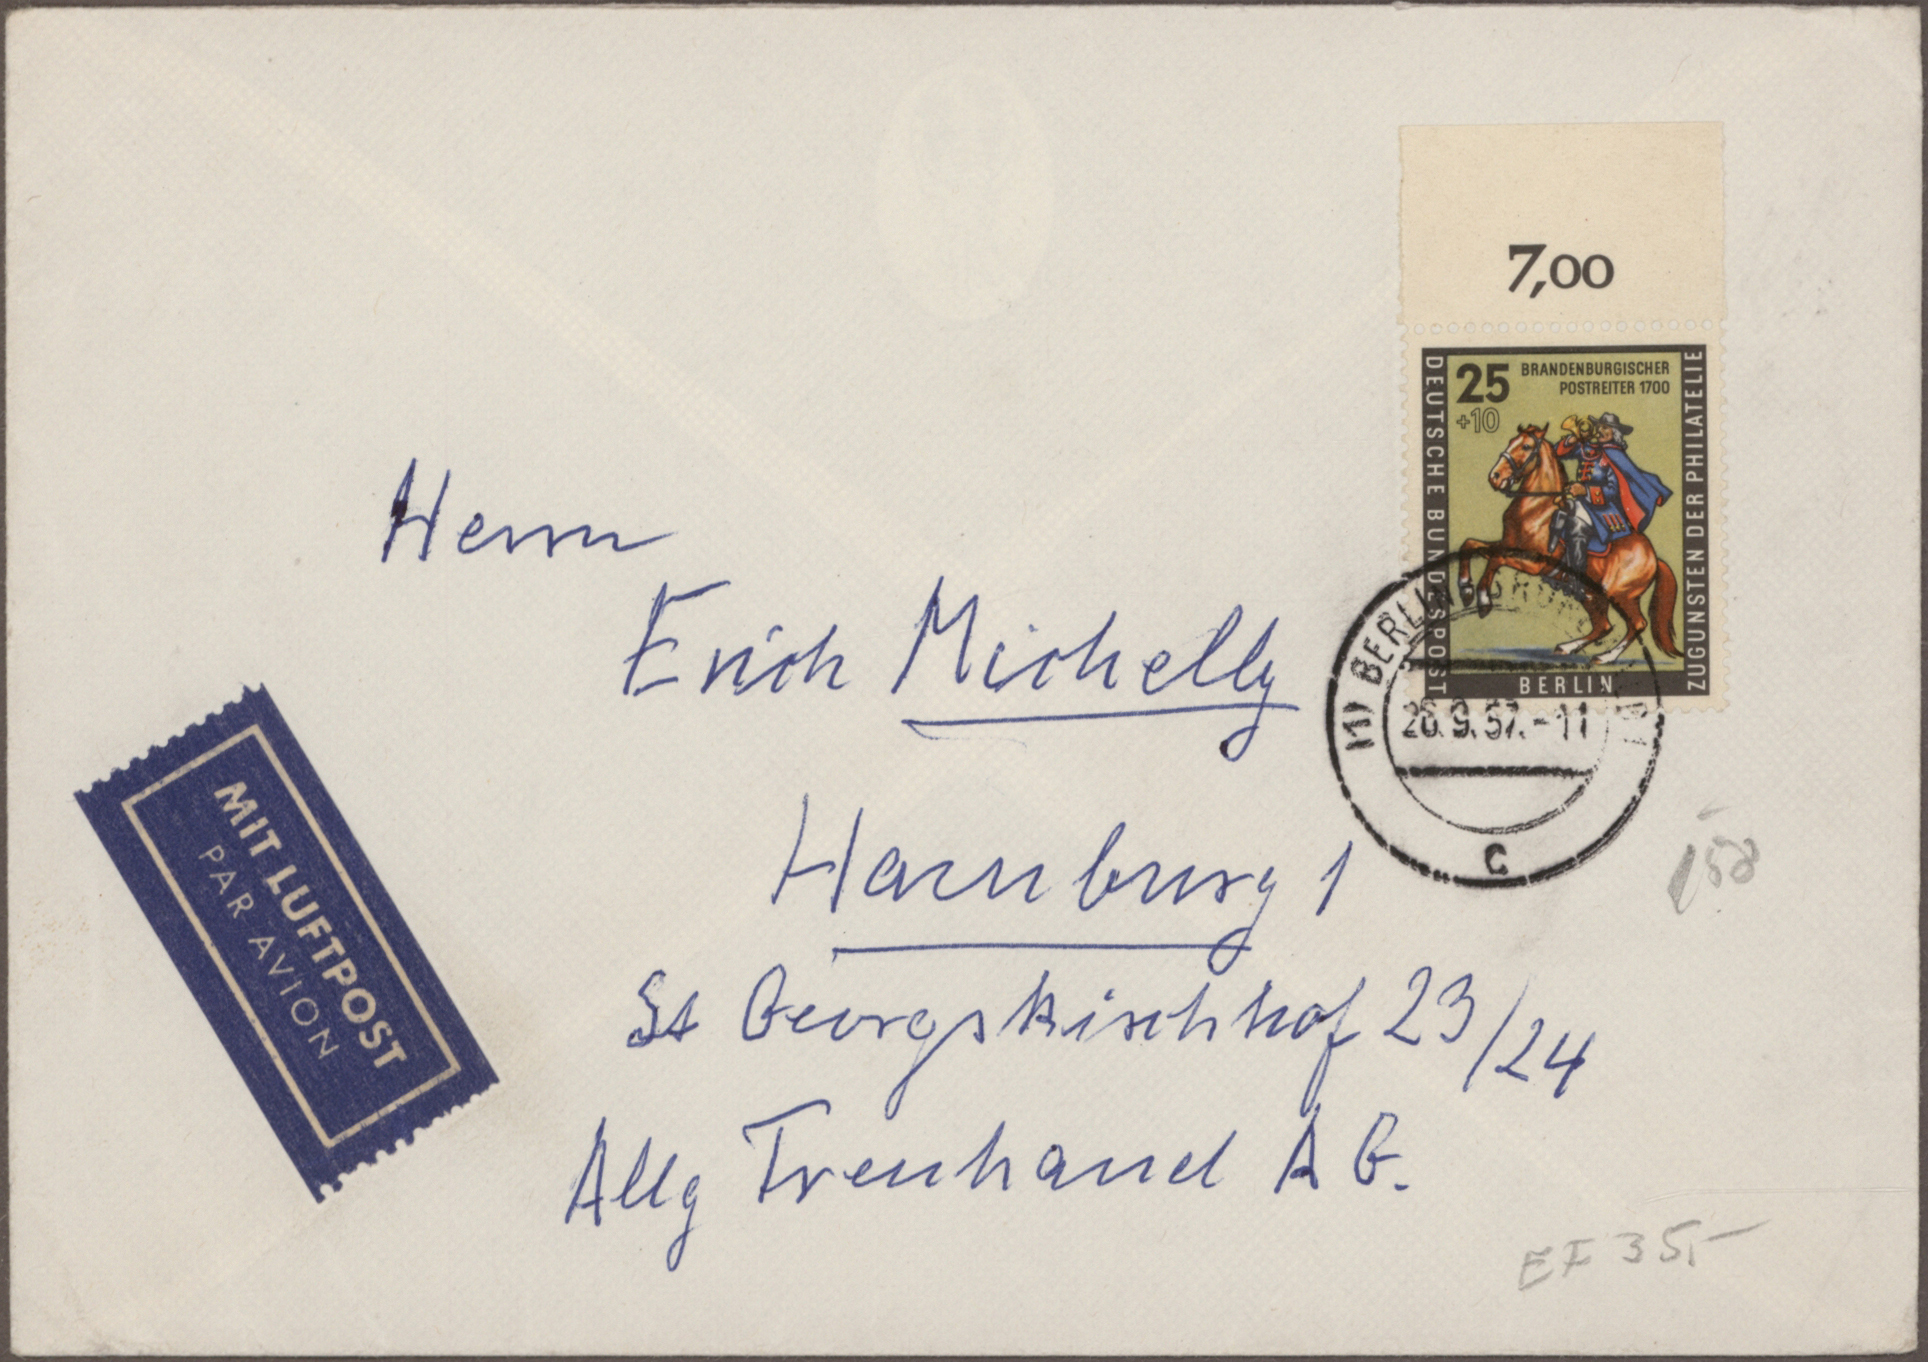 7,00
25
+10
BRANDENBURGISCHER
POSTREITER 1700
DEUTSCHE BUNDESPOST
ZUGUNSTEN DER PHILATELIE
BERLIN
(1) BERLIN
26.9.57.-11
c
Herrn
Erich Michelly
Hamburg 1
St Georgskirchhof 23/24
Allg Treuhand A G.
MIT LUFTPOST
PAR AVION
EF 35,-